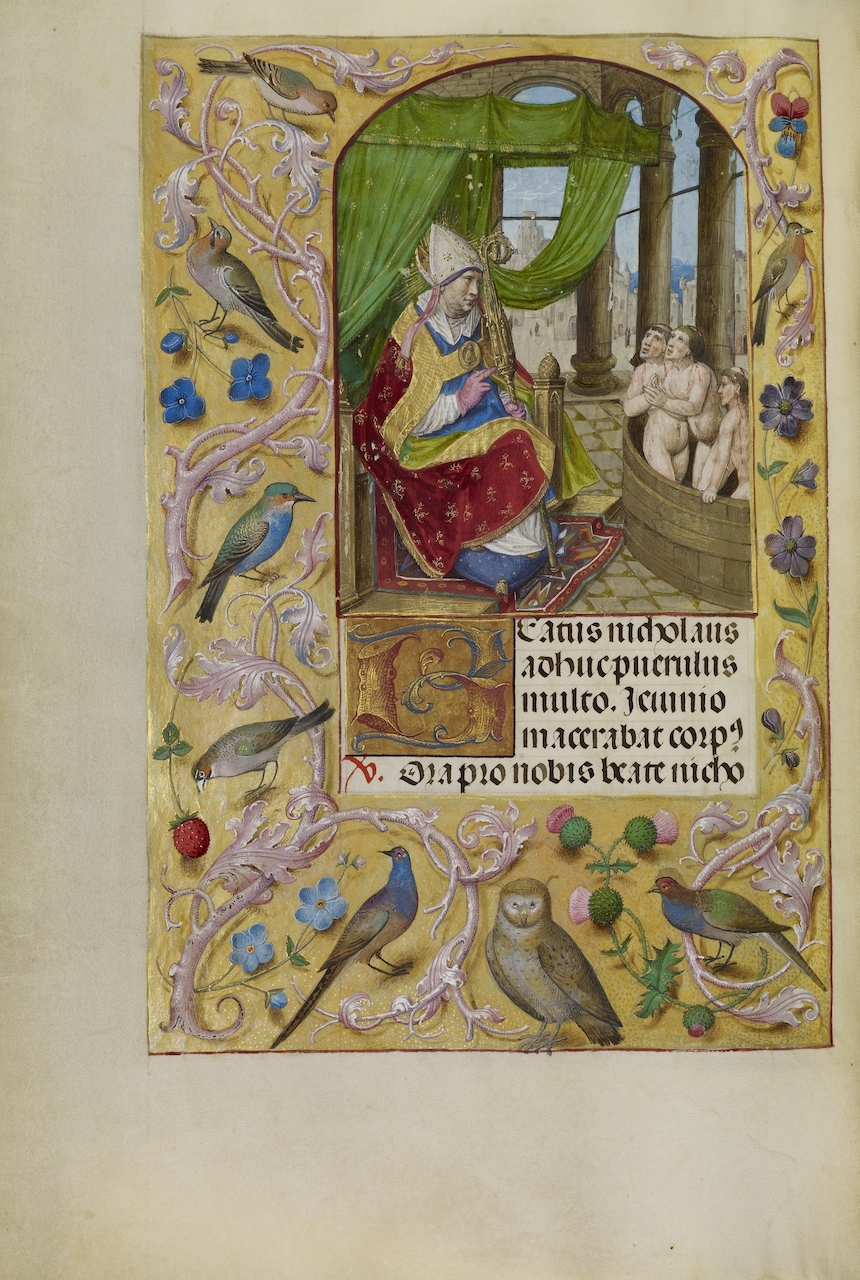 Beatus nicholaus
adhuc puerulus
multo. Jeiunio
macerabat corpꝰ.
V. Ora pro nobis beate nicho